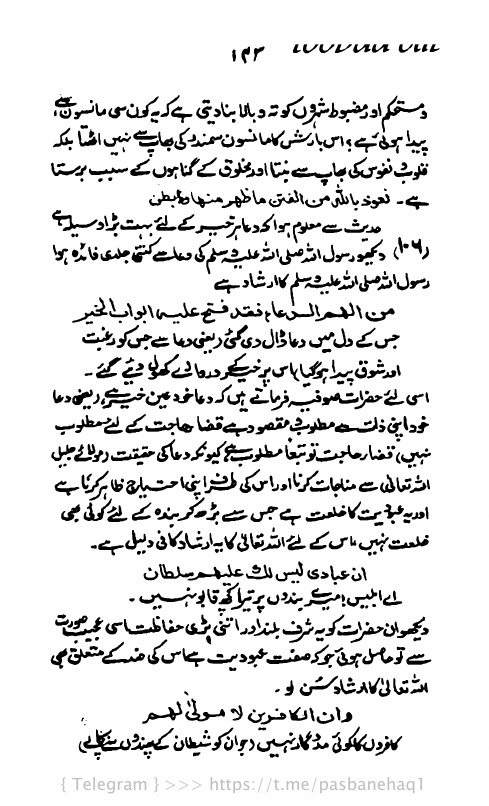 ۱۴۳
و مستحکم اور مضبوط شہروں کو تہ و بالا بنا دیتی ہے کہ یہ کون سی مانسون سے
پیدا ہوئی ہے؟ اس بارش کا مانسون سمندر کی بھاپ سے نہیں اٹھتا بلکہ
قلوب و نفوس کی بھاپ سے بنتا اور مخلوق کے گناہوں کے سبب برستا
ہے۔ نعوذ باللہ من الفتن ما ظهر منها وما بطن
حدیث سے معلوم ہوا کہ دعا ہر خیر کے لئے بہت بڑا وسیلہ ہے
(۱۰۶) دیکھو رسول اللہ صلی اللہ علیہ وسلم کی دعا سے کتنی جلدی فائدہ ہوا
رسول اللہ صلی اللہ علیہ وسلم کا ارشاد ہے
من الهم الدعاء فقد فتح عليه ابواب الخير
جس کے دل میں دعا ڈال دی گئی (یعنی دعا سے جس کو رغبت
اور شوق پیدا ہو گیا) اس پر خیر کے دروازے کھول دیئے گئے۔
اسی لئے حضرات صوفیہ فرماتے ہیں کہ دعا خود عین خیر ہے، (یعنی دعا
خود اپنی ذات سے مطلوب و مقصود ہے قضاء حاجت کے لئے مطلوب
نہیں) قضاء حاجت تو تبعاً مطلوب ہے کیونکہ دعا کی حقیقت (مولائے جلیل
اللہ تعالیٰ سے مناجات کرنا اور اس کی طرف اپنی احتیاج ظاہر کرنا ہے
اور یہ عبودیت کا خلعت ہے جس سے بڑھ کر بندہ کے لئے کوئی بھی
خلعت نہیں، اس کے لئے اللہ تعالیٰ کا یہ ارشاد کافی دلیل ہے۔
ان عبادی لیس لك علیهم سلطان
اے ابلیس! میرے بندوں پر تیرا کچھ قابو نہیں۔
دیکھو ان حضرات کو یہ شرف بلند اور اتنی بڑی حفاظت اسی عجیب صورت
سے تو حاصل ہوئی جو کہ صفت عبودیت ہے اس کی ضد کے متعلق بھی
اللہ تعالیٰ کا ارشاد سُن لو۔
وان الكافرين لا مولىٰ لهم
کافروں کا کوئی مددگار نہیں (جو ان کو شیطان کے پھندوں سے نکالے)
{ Telegram } >>> https://t.me/pasbanehaq1